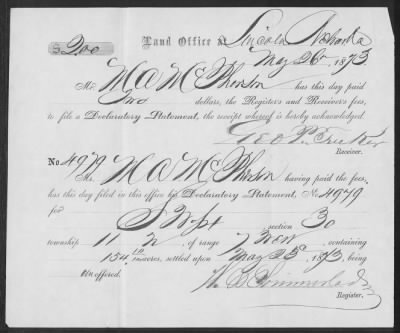 $ 2oo Land Office at Lincoln Nebraska
May 26th 1873
Mr. M A McPherson has this day paid
Two dollars, the Register's and Receiver's fees,
to file a Declaratory Statement, the receipt whereof is hereby acknowledged.
Geo P Tucker
Receiver.
No. 4979 Mr. M A McPherson having paid the fees,
has this day filed in this office his Declaratory Statement, No. 4979
for S W qr section 30
township 11 N of range 7 West, containing
154 acres, settled upon May 25th, 1873, being
Un offered.
Register.